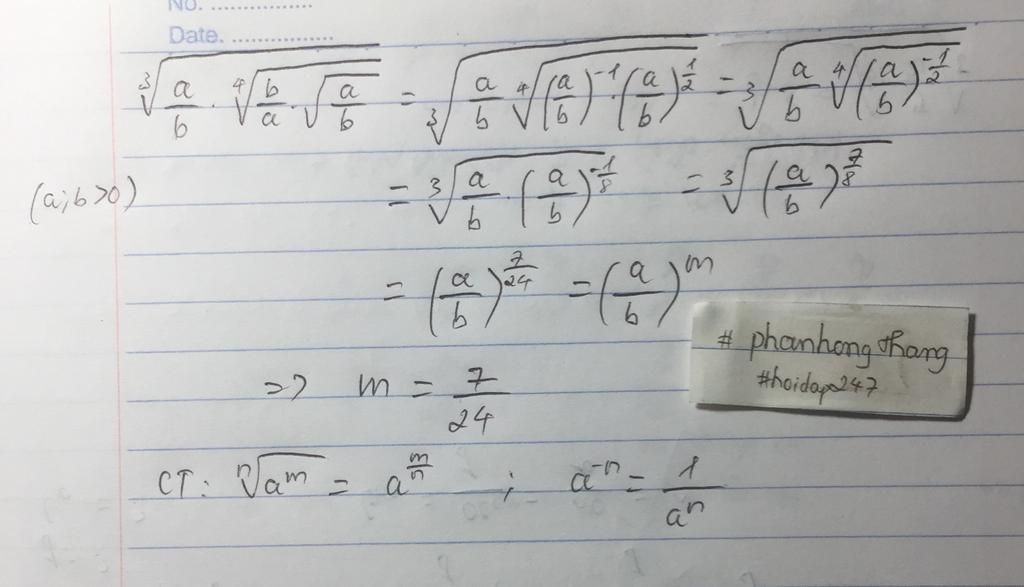 No. ................
Date. ................
∛(a/b · ∜(b/a · √(a/b))) = ∛(a/b ∜((a/b)^-1 · (a/b)^(1/2))) = ∛(a/b ∜((a/b)^(-1/2)))
(a;b>0) = ∛(a/b · (a/b)^(-1/8)) = ∛((a/b)^(7/8))
= (a/b)^(7/24) = (a/b)^m
# phanhongthang
#hoidap247
=> m = 7/24
CT: ⁿ√(a^m) = a^(m/n) ; a^-n = 1/a^n